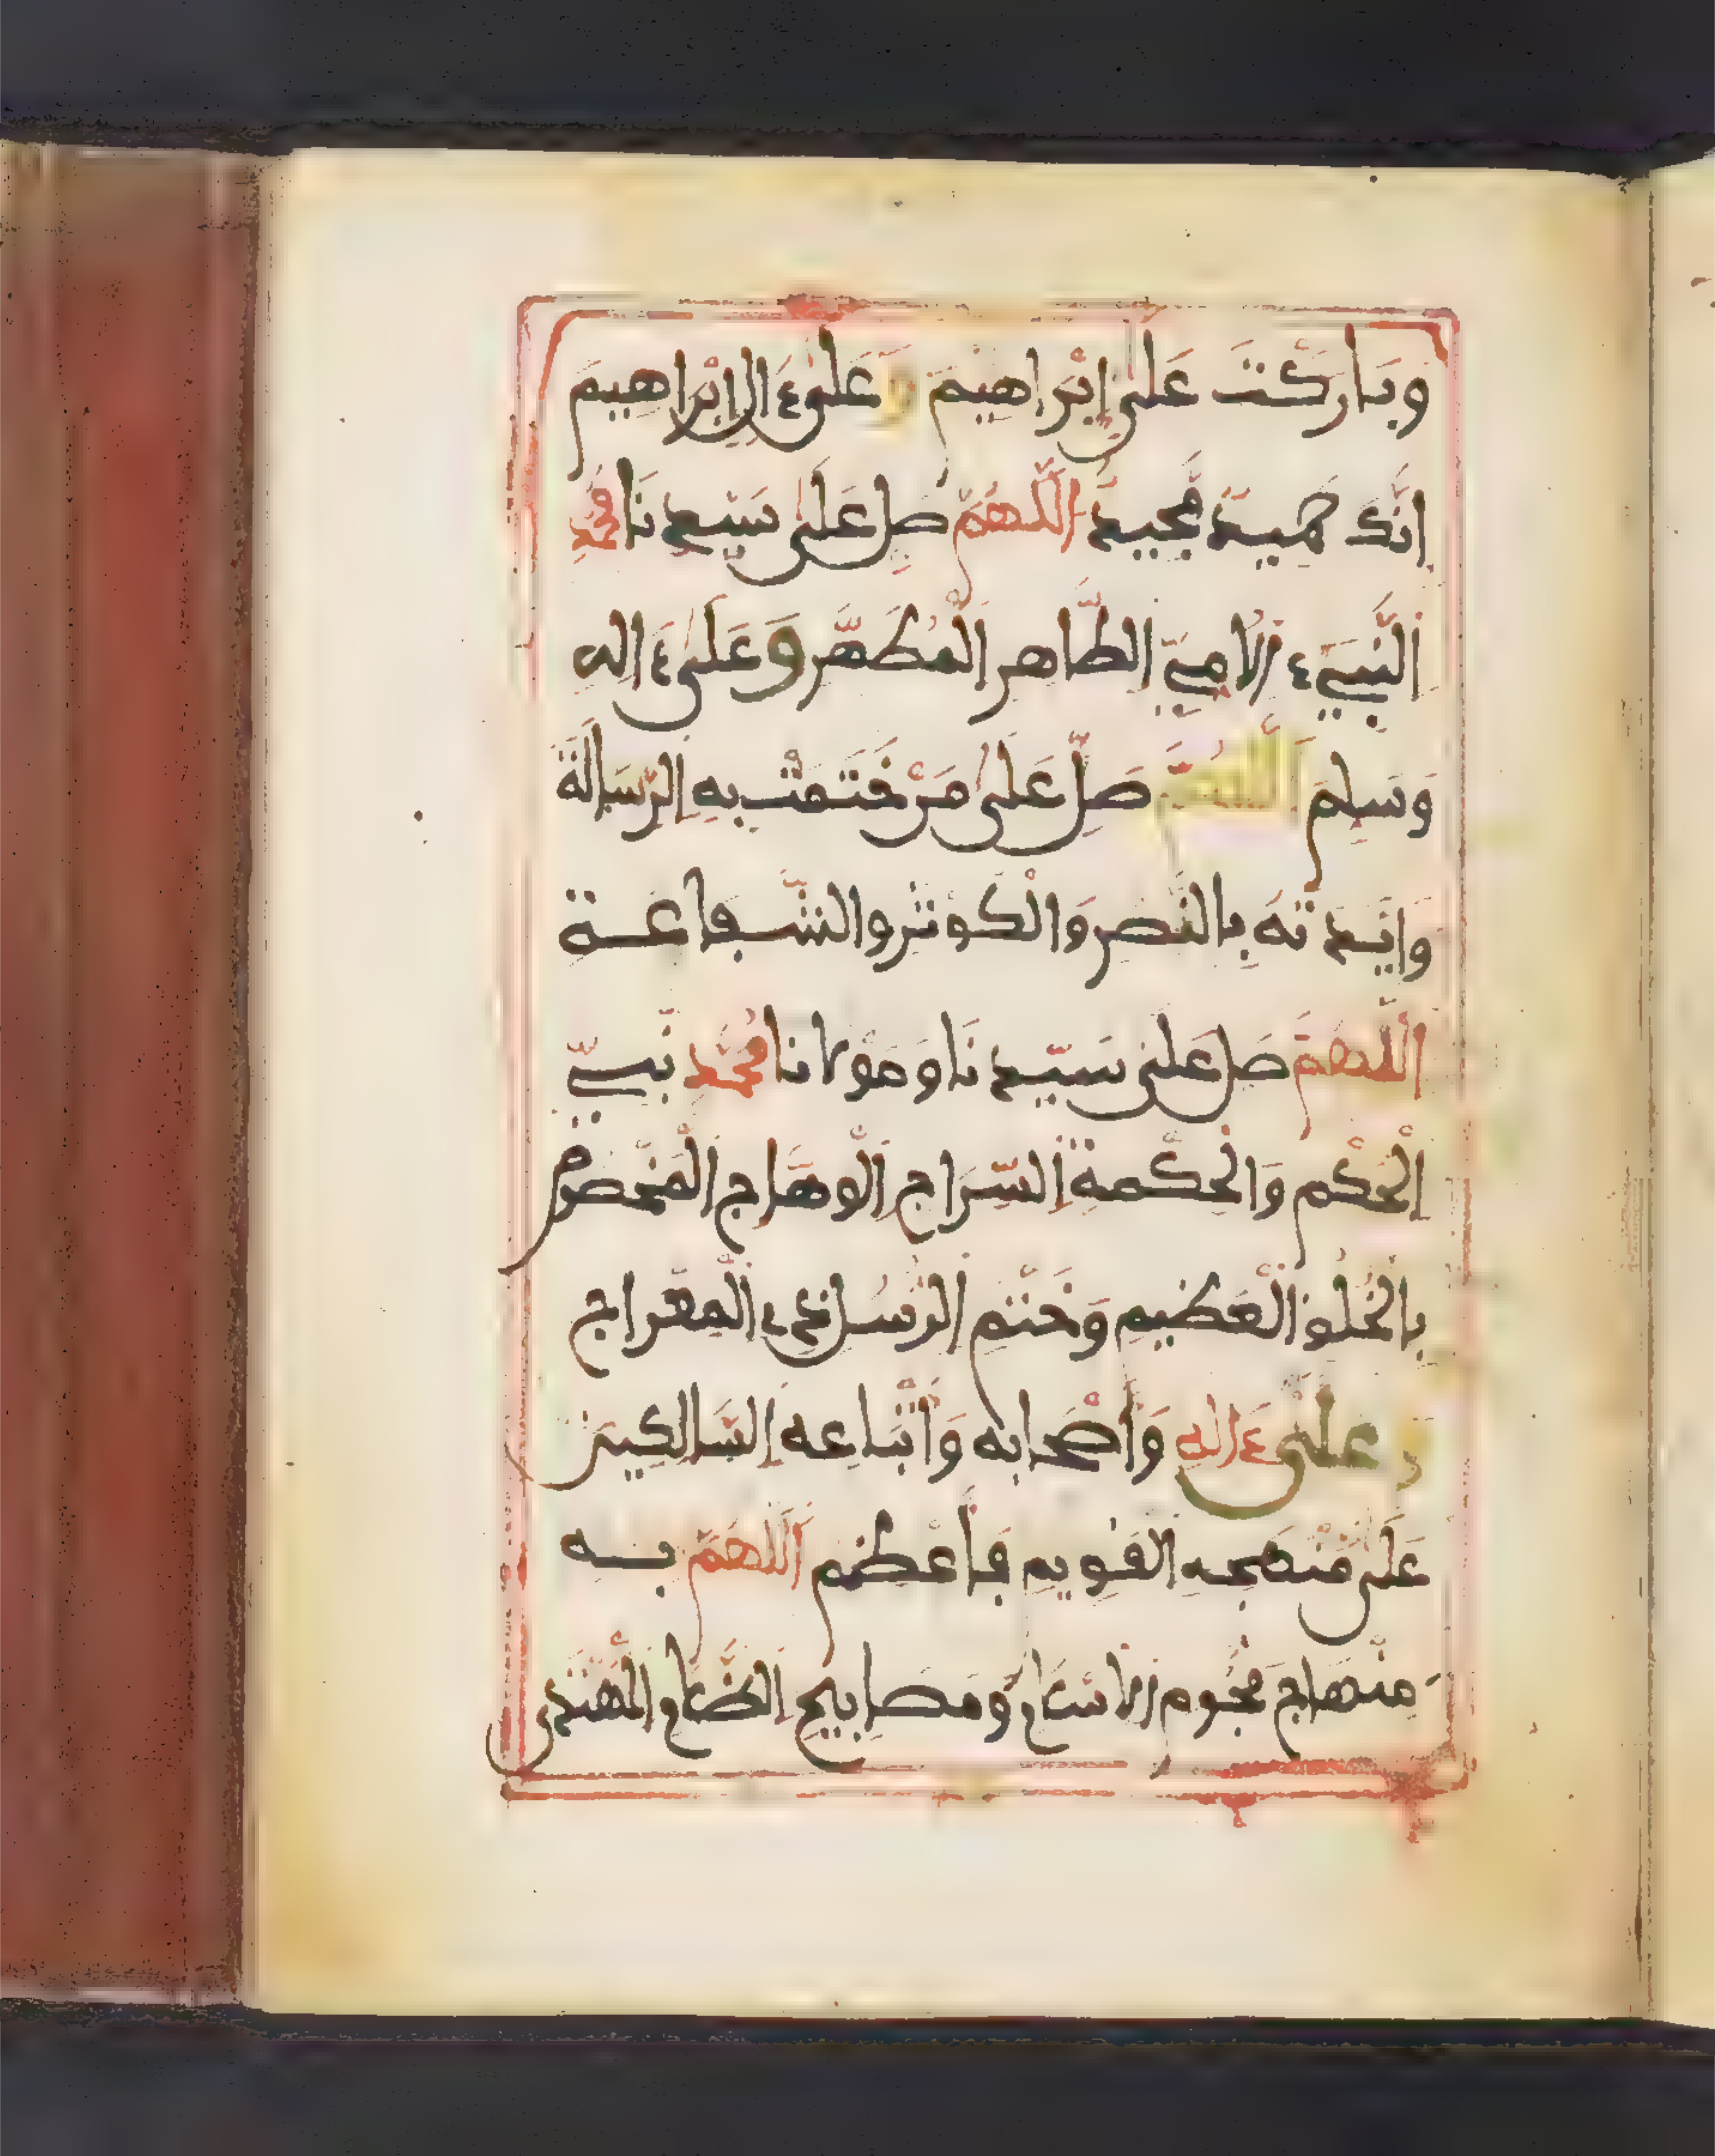 وَبَارَكْتَ عَلَى إِبْرَاهِيمَ وَعَلَى ءَالِ إِبْرَاهِيمَ
إِنَّكَ حَمِيدٌ مَّجِيدٌ اَللَّهُمَّ صَلِّ عَلَى سَيِّدِنَا مُحَمَّدٍ
اَلنَّبِيِّءِ الْأُمِّيِّ الطَّاهِرِ الْمُطَهَّرِ وَعَلَى ءَالِهِ
وَسَلِّمَ اَللَّهُمَّ صَلِّ عَلَى مَنْ خَتَمْتَ بِهِ الرِّسَالَةَ
وَأَيَّدْتَهُ بِالنَّصْرِ وَالْكَوْثَرِ وَالشَّفَاعَةِ
اَللَّهُمَّ صَلِّ عَلَى سَيِّدِنَا وَمَوْلَانَا مُحَمَّدٍ نَّبِيِّ
اِلْحُكْمِ وَالْحِكْمَةِ اِلسِّرَاجِ اِلْوَهَّاجِ اِلْمَخْصُوصِ
بِالْخُلُقِ الْعَظِيمِ وَخَتْمِ الرُّسُلِ ذِي الْمِعْرَاجِ
وَعَلَى ءَالِهِ وَأَصْحَابِهِ وَأَتْبَاعِهِ اِلسَّالِكِينَ
عَلَى مَنْهَجِهِ الْقَوِيمِ فَأَعْظِمِ اِللَّهُمَّ بِهِ
مِنْهَاجَ نُجُومِ الْإِسْلَامِ وَمَصَابِيحِ الظَّلَامِ الْمُهْتَدَى